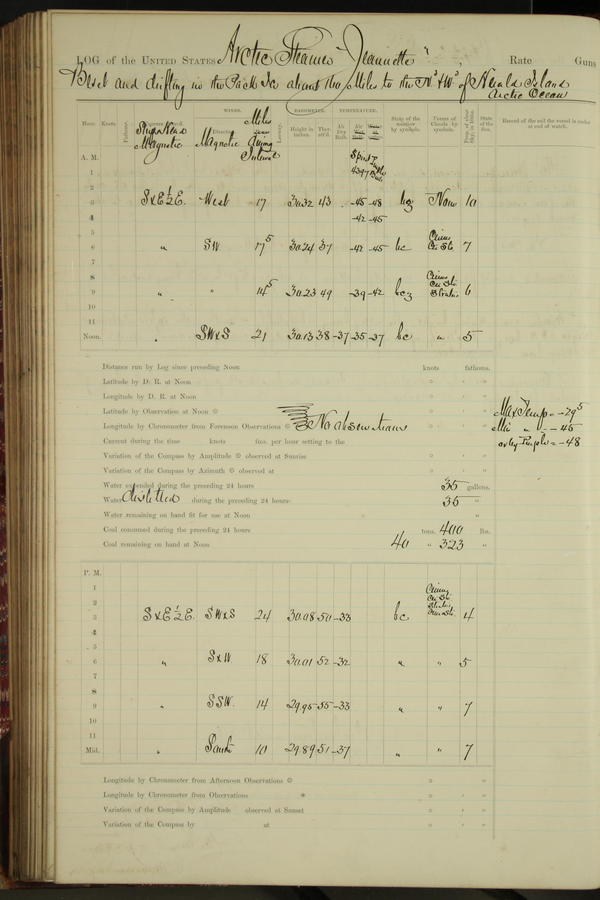 LOG of the UNITED STATES Arctic Steamer "Jeannette" Rate Guns
Beset and drifting in the Pack Ice about two Miles to the Nd & Wd of Herald Island
Arctic Ocean
Hour. Knots. Fathoms. Ship's Head Magnetic WINDS. Direction Magnetic Miles during Interval Leeway. BAROMETER. Height in inches. Ther. att'd. TEMPERATURE. Air Dry Bulb. State of the weather by symbols. Forms of Clouds by symbols. State of the Sea. Record of the sail the vessel is under at end of watch.
A. M.
1
2
3 SxE½E. West 17 30.32 43 -45 -48 None 10
4 -42 -45
5
6 " SW 17⁵ 30.24 37 -42 -45 bc 7
7
8
9 " " 14⁵ 30.23 49 -39 -42 bcz 6
10
11
Noon. " SWxS 21 30.13 38 -37 -35 -37 bc " 5
Distance run by Log since preceding Noon knots fathoms.
Latitude by D. R. at Noon
Longitude by D. R. at Noon
Latitude by Observation at Noon
Longitude by Chronometer from Forenoon Observations No observations
Current during the time knots fms. per hour setting to the
Variation of the Compass by Amplitude observed at Sunrise
Variation of the Compass by Azimuth observed at
Water expended during the preceding 24 hours 35 gallons.
Water distilled during the preceding 24 hours 35 "
Water remaining on hand fit for use at Noon "
Coal consumed during the preceding 24 hours tons. 400 lbs.
Coal remaining on hand at Noon 40 " 323 "
Max Temp = -29⁵
Min " = -45
or by Purple = -48
P. M.
1
2
3 SxE½E. SWxS 24 30.08 50 -33 bc 4
4
5
6 " SxW 18 30.01 52 -32 " " 5
7
8
9 " SSW. 14 29.95 55 -33 " " 7
10
11
Mid. " South 10 29.89 51 -37 " " 7
Longitude by Chronometer from Afternoon Observations
Longitude by Chronometer from Observations
Variation of the Compass by Amplitude observed at Sunset
Variation of the Compass by at